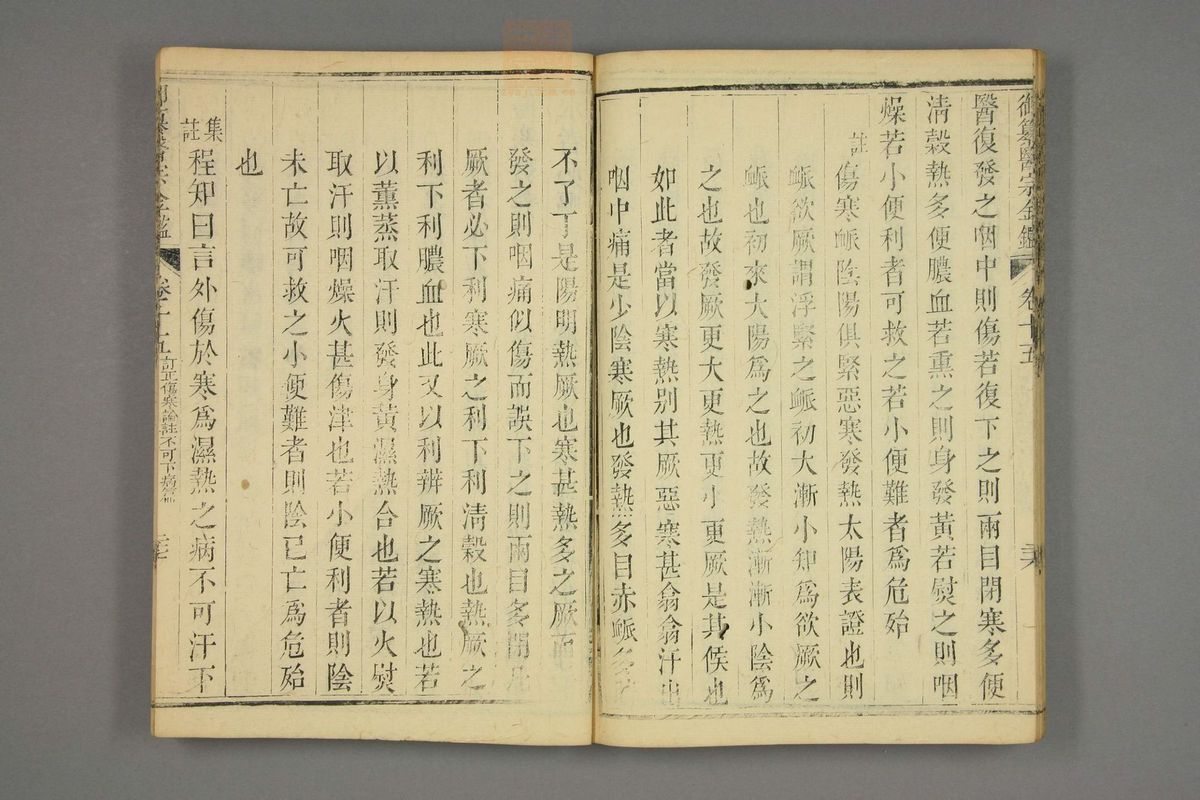 御纂醫宗金鑑 卷十五 三六
醫復發之咽中則傷若復下之則兩目閉寒多便
清穀熱多便膿血若熏之則身發黃若熨之則咽
燥若小便利者可救之若小便難者爲危殆
註 傷寒脈陰陽俱緊惡寒發熱太陽表證也則
脈欲厥謂浮緊之脈初大漸小知爲欲厥之
脈也初來大陽爲之也故發熱漸漸小陰爲
之也故發厥更大更熱更小更厥是其候也
如此者當以寒熱別其厥惡寒甚翕翕汗出
咽中痛是少陰寒厥也發熱多目赤脈多
不了了是陽明熱厥也寒甚熱多之厥而
發之則咽痛似傷而誤下之則兩目多閉
厥者必下利寒厥之利下利清穀也熱厥之
利下利膿血也此又以利辨厥之寒熱也若
以薰蒸取汗則發身黃濕熱合也若以火熨
取汗則咽燥火甚傷津也若小便利者則陰
未亡故可救之小便難者則陰已亡爲危殆
也
集註 程知曰言外傷於寒爲濕熱之病不可汗下
宗金鑑 卷十五 訂正傷寒論註不可下病篇